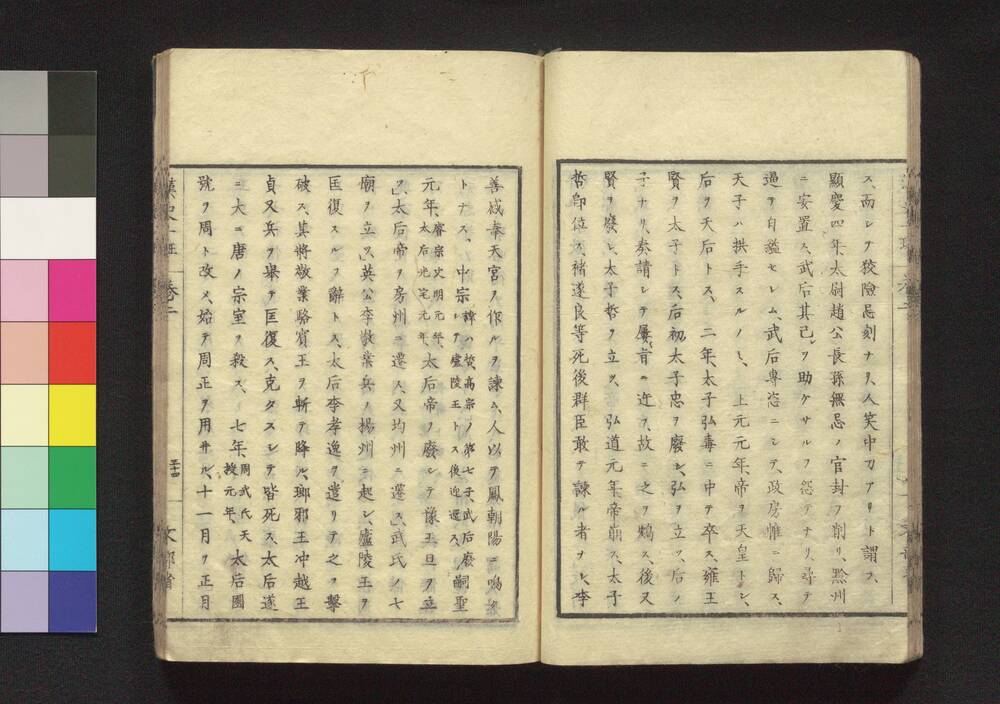 ス、而シテ狡險忌刻ナリ、人笑中刀アリト謂フ、
顯慶四年、太尉趙公長孫無忌ノ官封ヲ削リ、黔州
ニ安置ス、武后其己ヲ助ケサルヲ怨テナリ、尋テ
過ヲ自縊セシム、武后專恣ニシテ、政房帷ニ歸ス、
天子ハ拱手スルノミ、上元元年、帝ヲ天皇トシ、
后ヲ天后トス、二年、太子弘毒ニ中テ卒ス、雍王
賢ヲ太子トス、后初太子忠ヲ廢シ、弘ヲ立ツ、后ノ
子ナリ、奏請シテ屢旨ニ迕フ、故ニ之ヲ鴆ス、後又
賢ヲ廢シ、太子哲ヲ立ツ、弘道元年、帝崩ス、太子
哲卽位ス、褚遂良等死後群臣敢テ諫ル者ナシ、李
善感奉天宮ヲ作ルヲ諫ム、人以テ鳳朝陽ニ鳴ク
トナス、中宗諱ハ哲、高宗ノ第七子、武后廢シテ廬陵王トス後迎還ス、嗣聖
元年、睿宗文明元年、太后光宅元年、太后帝ヲ廢シテ豫王旦ヲ立
ツ、太后帝ヲ房州ニ遷ス、又均州ニ遷ス、武氏ノ七
廟ヲ立ツ、英公李敬業兵ヲ揚州ニ起シ、廬陵王ヲ
匡復スルヲ辭トス、太后李孝逸ヲ遣リテ之ヲ擊
破ス、其將敬業駱賓王ヲ斬テ降ル、瑯邪王冲越王
貞又兵ヲ擧テ匡復ス、克タスシテ皆死ス、太后遂
ニ大ニ唐ノ宗室ヲ殺ス、七年、周武氏天授元年、太后國
號ヲ周ト改メ、始テ周正ヲ用井ル、十一月ヲ正月
漢史一班 卷二 三十四 文部省